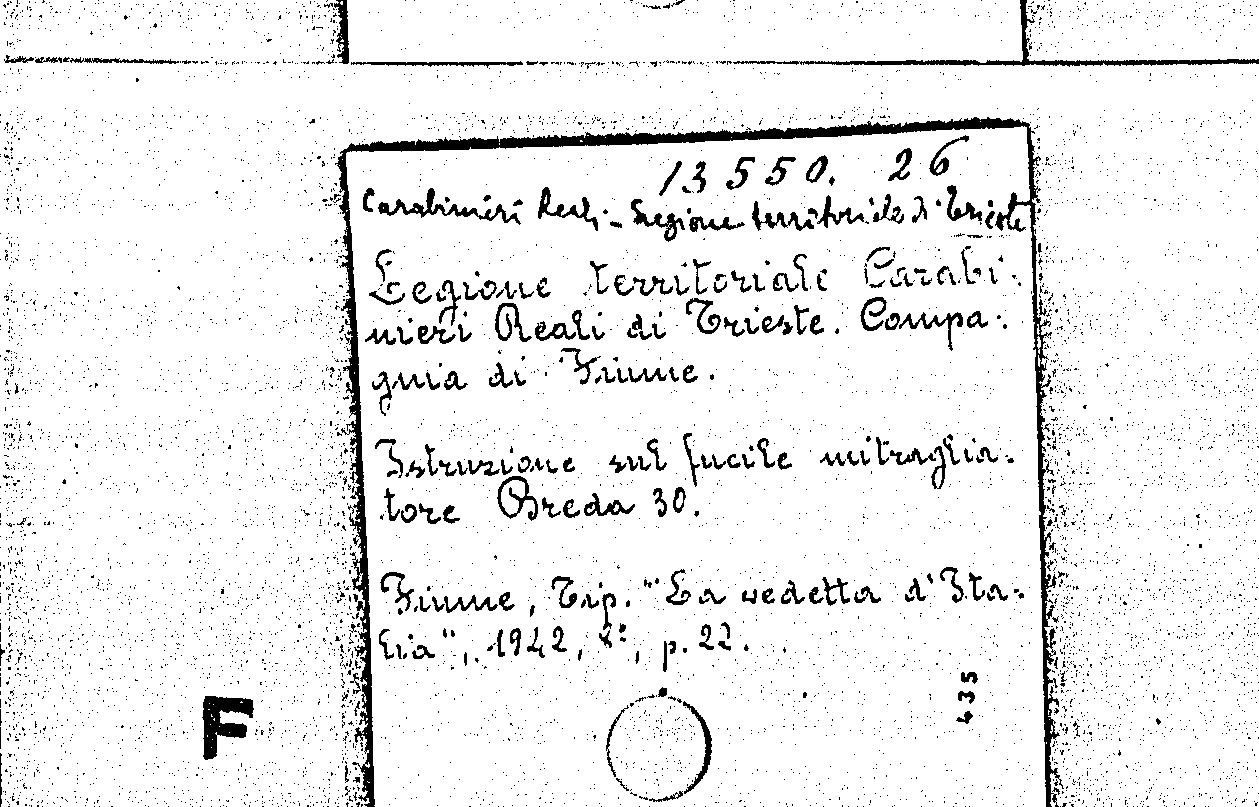 13550. 26
Carabinieri Reali - Legione territoriale di Trieste
Legione territoriale Carabi-
nieri Reali di Trieste. Compa-
gnia di Fiume.
Istruzione sul fucile mitraglia-
tore Breda 30.
Fiume, Tip. "La vedetta d'Ita-
lia", 1942, 8º, p. 22.
435
F